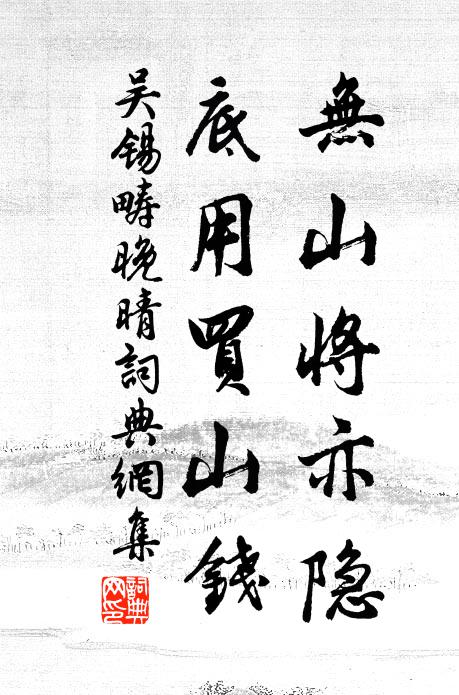 無山将亦隐
底用買山錢
吴錫疇晚晴詞典網集
詞典网印